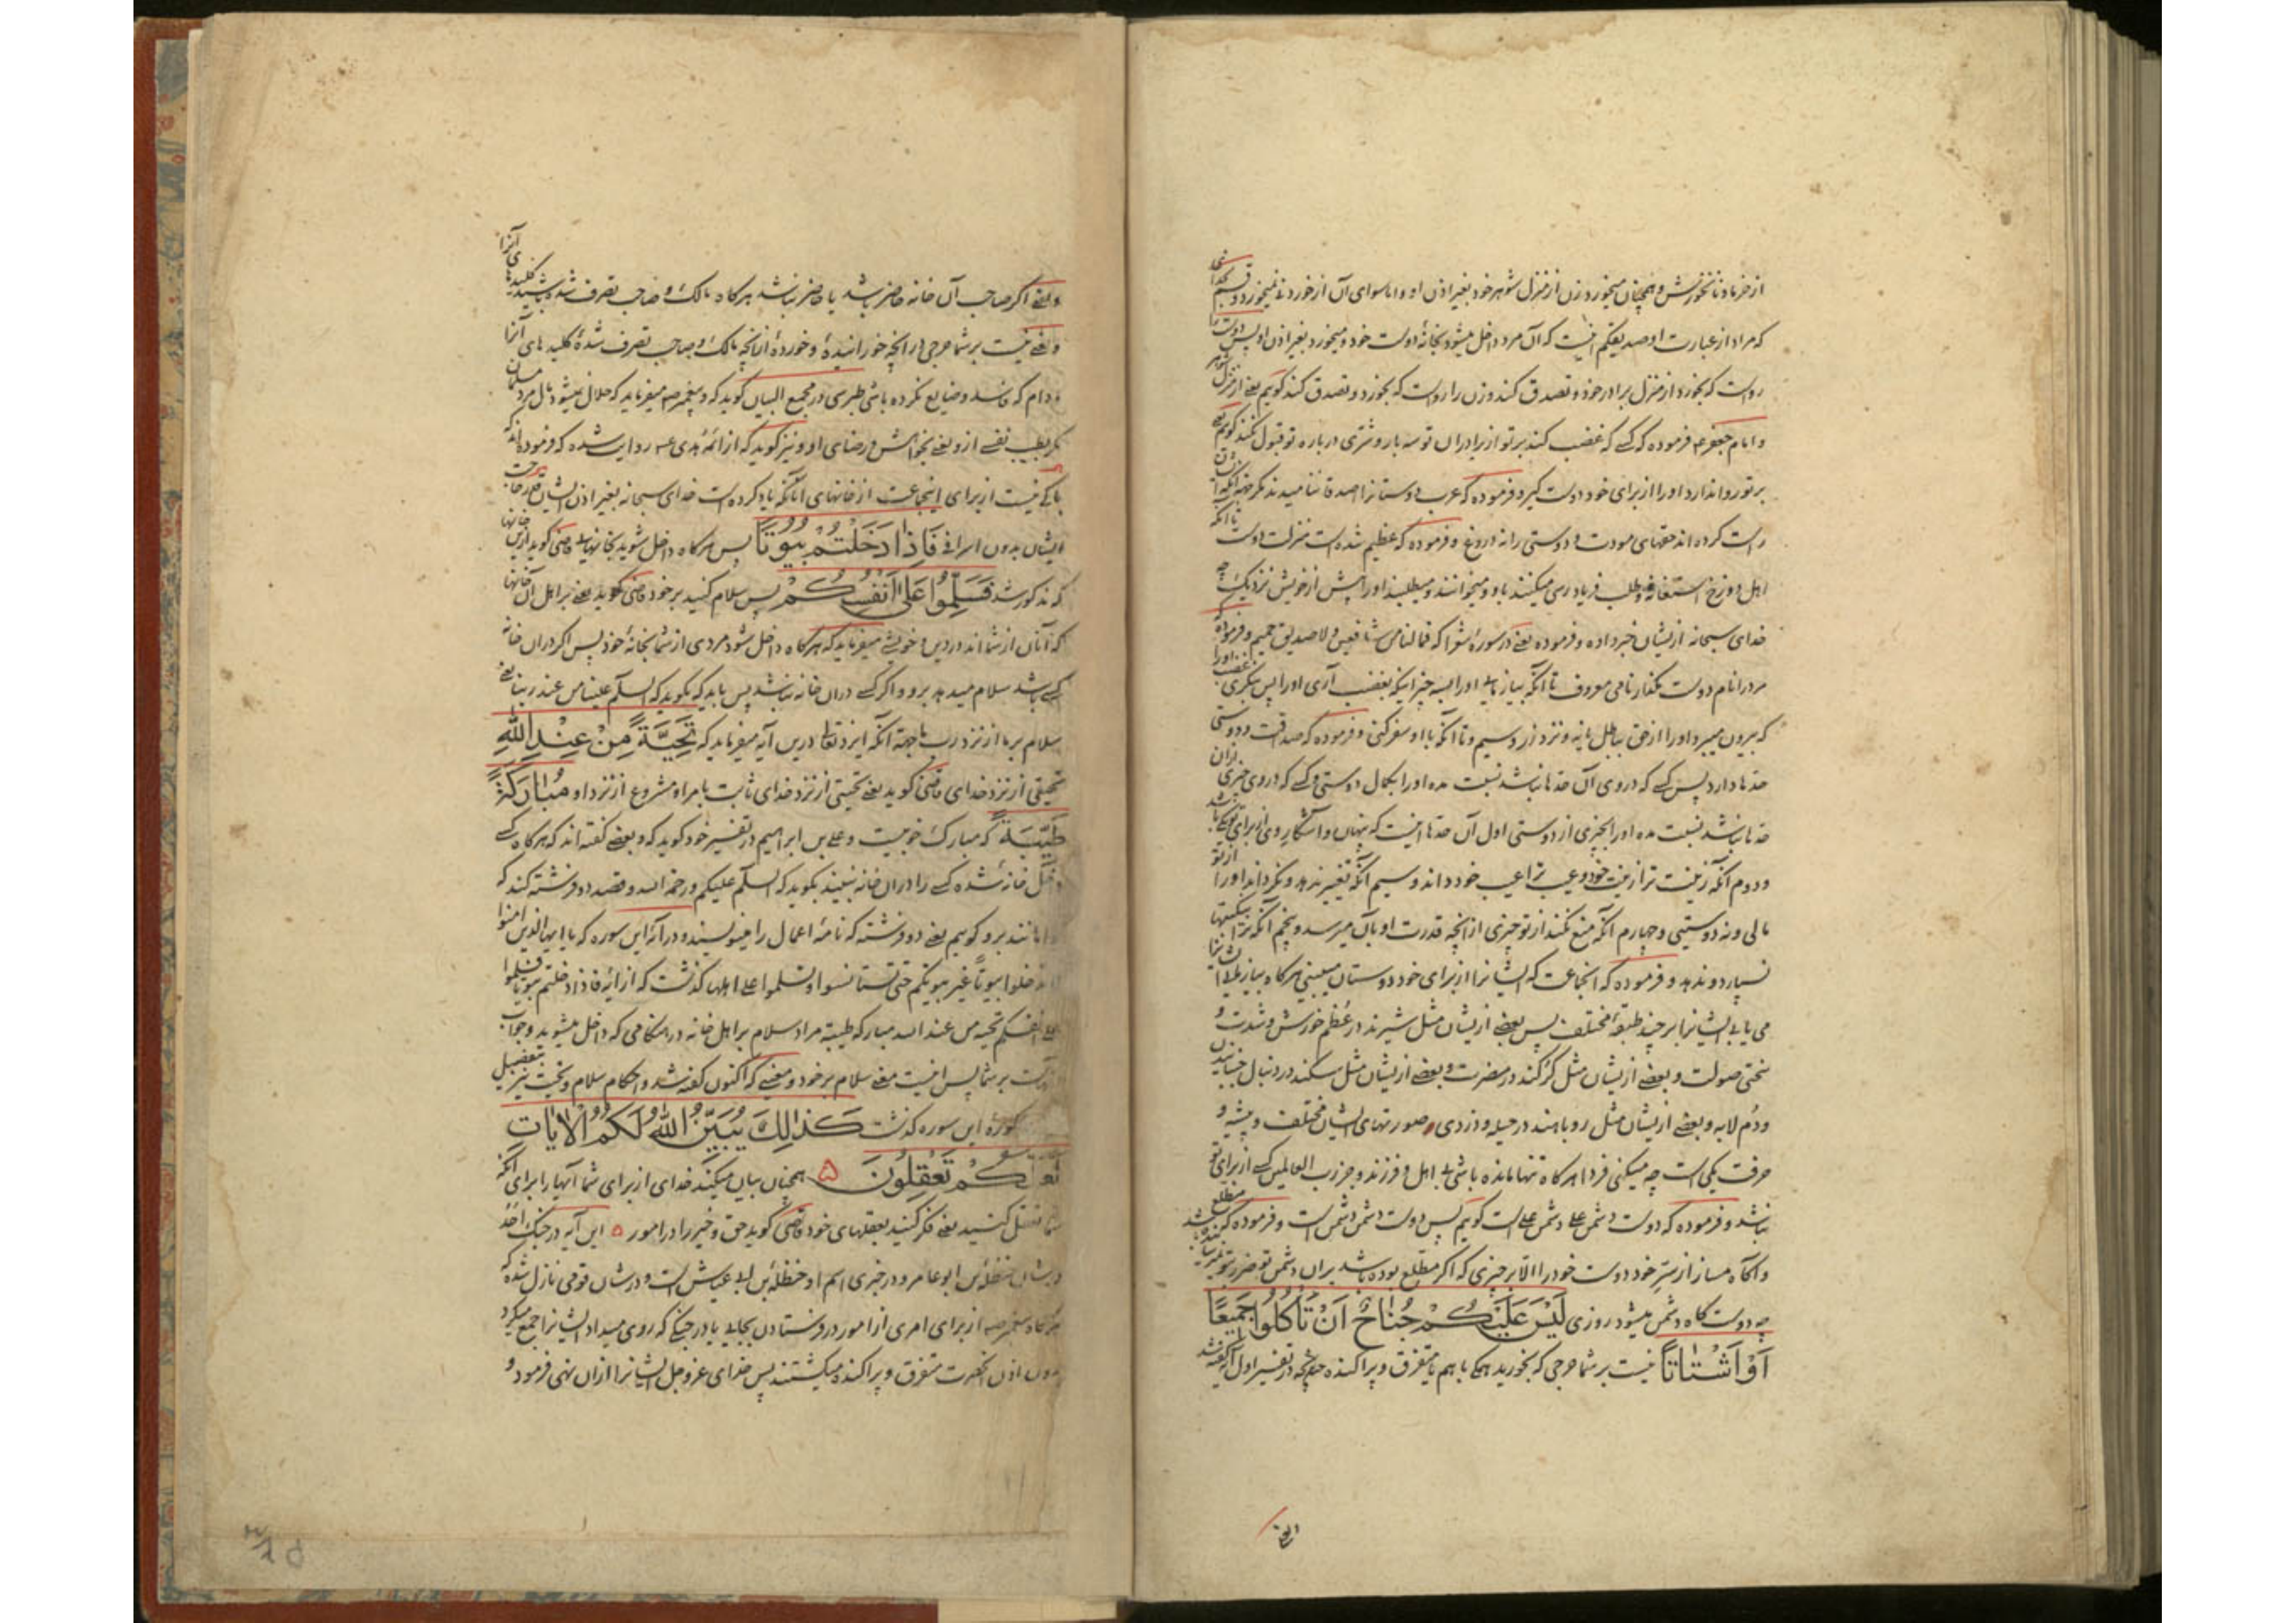 از خرما و نانخورش و همچنان میخورد زن از منزل شوهر خود بغیر اذن او و اما سوای آن از خوردنی نمیخورد و قسم
که مراد از عبارت او صدیقکم اینست که آن مرد داخل میشود بخانهٔ دوست خود و میخورد بغیر اذن او پس دوست را
رواست که بخورد از منزل برادر خود و تصدق کند و زن را رواست که بخورد و تصدق کند کویم یعنی از منزل شوهر
و امام جعفر ع فرموده که کسی که غضب کند بر تو از برادران تو سه بار و شری درباره تو قبول نکند کویم یعنی
بر تو روا ندارد او را از برای خود دوست گیر و فرموده که عرب دوستانرا اصدقا ننامیدند مگر جهة آنکه ایشان
راست کرده اند حقهای مودت و دوستی را نه دروغ و فرموده که عظیم شده است منزلت دوست تا آنکه
اهل دوزخ استغاثه و طلب فریادرسی میکنند باو و میخوانند و میطلبند او را پیش از خویش نزدیک چه
خدای سبحانه ازیشان خبر داده و فرموده یعنی در سورهٔ شعرا که فما لنا من شافعین و لا صدیق حمیم و فرموده که
مرد را نام دوست مگذار نامی معروف تا آنکه بیازمایی او را بسه چیز اینکه بغضب آری او را پس بنگری غضب او را
که بیرون میبرد او را از حق بباطل یا نه و نزد زر و سیم و تا آنکه با او سفر کنی و فرموده که صداقت و دوستی
حدها دارد پس کسی که در وی آن حدها نباشد نسبت مده او را بکمال دوستی و کسی که در وی چیزی ازان
حدها نباشد نسبت مده او را بچیزی از دوستی اول آن حدها اینست که پنهان و آشکار وی از برای تو یکی باشد
و دوم آنکه زینت ترا زینت خود و عیب ترا عیب خود داند و سیم آنکه تغییر ندهد و نگرداند او را از تو
مالی و نه دوستیی و چهارم آنکه منع نکند از تو چیزی از آنچه قدرت او بآن میرسد و پنجم آنکه ترا بنکبتها
نسپارد و ندهد و فرموده که آنجماعت که ایشانرا از برای خود دوستان میبینی هرگاه بیازمایی ایشانرا
می یابی ایشانرا بر چند طبقهٔ مختلف پس بعضی ازیشان مثل شیرند در عظم خورش و شدت و
سختی صولت و بعضی ازیشان مثل گرگند در مضرت و بعضی ازیشان مثل سگند در دنبال جنبانیدن
و دم لابه و بعضی ازیشان مثل روباهند در حیله و دزدی صورتهای ایشان مختلف و پیشه و
حرفت یکی است چه میکنی فردا هرگاه تنها مانده باشی بی اهل و فرزند و جز رب العالمین کسی از برای تو
نباشد و فرموده که دوست دشمن علی دشمن علی است کویم پس دوست دشمن دشمن است و فرموده که مطلع
و آگاه مساز از سر خود دوست خود را الا بر چیزی که اگر مطلع بوده باشد بران دشمن تو ضرر بتو نمیرساند
چه دوست گاه دشمن میشود روزی لَیْسَ عَلَیْکُمْ جُنَاحٌ اَنْ تَأْکُلُوا جَمِیعًا
اَوْ اَشْتَاتًا نیست بر شما حرجی که بخورید همگی با هم یا متفرق و پراکنده چنانچه در تفسیر اول آیه گفته شد
و یعنی اگر صاحب آن خانه حاضر باشد یا حاضر نباشد هرگاه مالک و صاحب تصرف شده باشید کلیدهای آنرا
و یعنی نیست بر شما حرجی در آنچه خورانیده و خورده از آنچه مالک و صاحب تصرف شدهٔ کلیدهای آنرا
مادام که فاسد و ضایع نکرده باشی طبرسی در مجمع البیان گوید که و پیغمبر ص میفرماید که حلال نمیشود مال مرد مسلمان
مگر بطیب نفسی ازو یعنی بخواهش و رضای او و نیز گوید که از ائمهٔ هدی ع روایت شده که فرموده اند که
باکی نیست از برای اینجماعت از خانهای آنانکه یاد کرده است خدای سبحانه بغیر اذن ایشان قدر حاجت
ایشان بدون اسرافی فَاِذَا دَخَلْتُمْ بُیُوتًا پس هرگاه داخل شوید بخانهایی قاضی گوید ازین خانها
که مذکور شد فَسَلِّمُوا عَلَی اَنْفُسِکُمْ پس سلام کنید بر خود قاضی گوید یعنی بر اهل آن خانها
که آنان از شما اند در دین و خویشی میفرماید که هرگاه داخل شود مردی از شما بخانهٔ خود پس اگر دران خانه
کسی باشد سلام میدهد برو و اگر کسی دران خانه نباشد پس باید که بگوید که السلام علینا من عند ربنا یعنی
سلام بر ما از نزد رب ما جهة آنکه ایزد تعالی درین آیه میفرماید که تَحِیَّةً مِنْ عِنْدِ اللّٰهِ
تحیتی از نزد خدای قاضی گوید یعنی تحیتی از نزد خدای ثابت بامر او مشروع از نزد او مُبَارَکَةً
طَیِّبَةً که مبارک خوبیست و علی بن ابراهیم در تفسیر خود گوید که و بعضی گفته اند که هرگاه کسی
داخل خانهٔ شده کسی را دران خانه نبیند بگوید که السلام علیکم و رحمة الله و قصد دو فرشته کند که
مانند برو کویم یعنی دو فرشته که نامهٔ اعمال را مینویسند و در آیهٔ این سوره که یا ایها الذین امنوا
لا تدخلوا بیوتا غیر بیوتکم حتی تستانسوا و تسلموا علی اهلها گذشت که از آیهٔ فاذا دخلتم بیوتا فسلموا
علی انفسکم تحیة من عند الله مبارکه طیبة مراد سلام بر اهل خانه در هنگامی که داخل میشوید و جواب
بر شما پس اینست معنی سلام بر خود و معنیی که اکنون گفته شد و احکام سلام و تحیت نیز بتفصیل
این سوره گذشت کَذٰلِکَ یُبَیِّنُ اللّٰهُ لَکُمُ الْاٰیَاتِ
لَعَلَّکُمْ تَعْقِلُونَ ۵ همچنان بیان میکند خدای از برای شما آیها را برای آنکه
شما تعقل کنید یعنی فکر کنید بعقلهای خود قاضی گوید حق و خیر را در امور ۵ این آیه در جنگ احد
در شان حنظله بن ابو عامر و در خبری اسم او حنظله بن ابی عیاش است و در شان قومی نازل شده که
هرگاه پیغمبر ص از برای امری از امور در فرستادن بجایی یا در جنگی که روی میداد ایشانرا جمع میکرد
بدون اذن آنحضرت متفرق و پراکنده میگشتند پس خدای عز و جل ایشانرا ازان نهی فرمود و